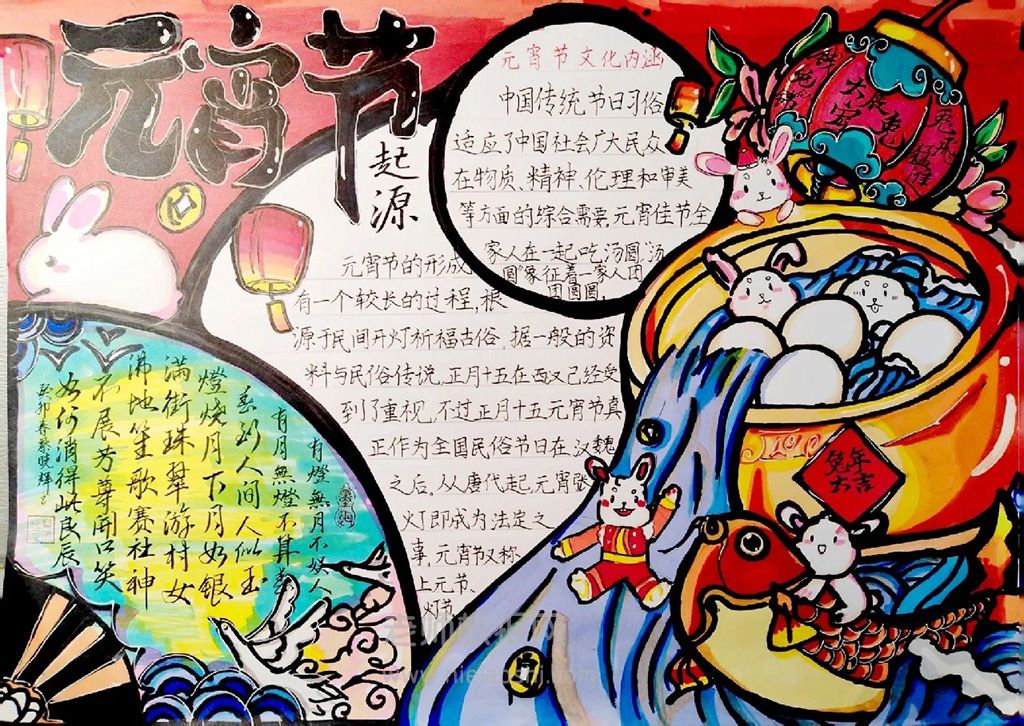 元宵节
起源
元宵节的形成
有一个较长的过程,根
源于民间开灯祈福古俗。据一般的资
料与民俗传说,正月十五在西汉已经受
到了重视,不过正月十五元宵节真
正作为全国民俗节日在汉魏
之后,从唐代起,元宵张
灯即成为法定之
事,元宵节又称
上元节、
灯节
元宵节文化内涵
中国传统节日习俗
适应了中国社会广大民众
在物质、精神、伦理和审美
等方面的综合需要,元宵佳节全
家人在一起吃汤圆,汤
圆"象征着一家人团
团圆圆,
大展宏兔
兔年
大吉
有燈無月不娱人
有月無燈不算春
春到人間人似玉
燈燒月下月如銀
满街珠翠游村女
沸地笙歌赛社神
不展芳尊開口笑
如何消得此良辰
癸卯春
www.